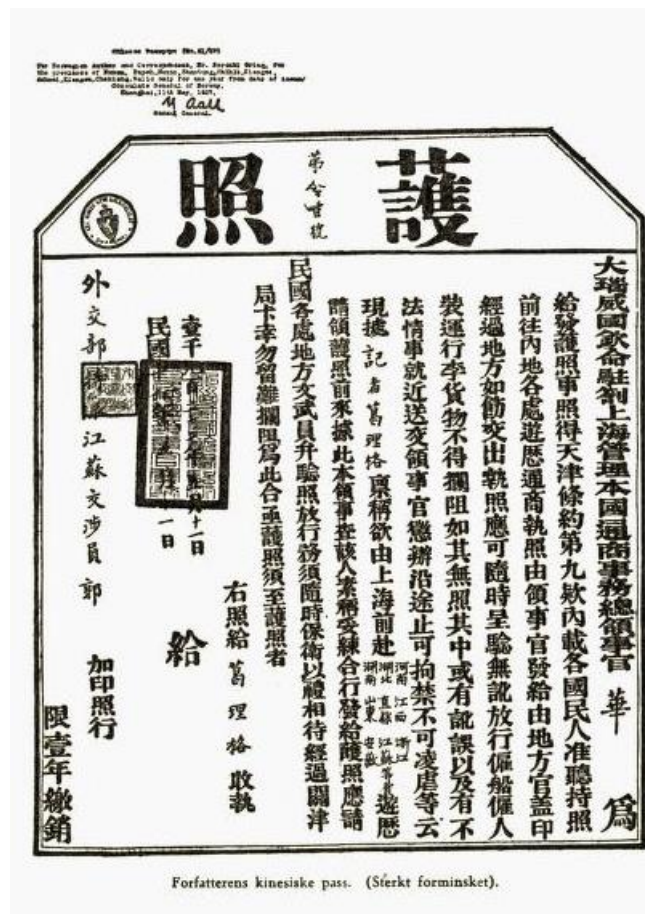 For Norwegian Author and Correspondent, Mr. Nordahl Grieg, for
the provinces of Honan, Hupeh,
Valid only for one year from date of issue/
Consulate General of Norway,
Shanghai, 11th May, 1927.
Aall
Consul General.
護照
第
號
大瑙威國欽命駐劄上海管理本國通商事務總領事官 華 爲
給發護照事照得天津條約第九欵內載各國民人准聽持照
前往內地各處遊歷通商執照由領事官發給由地方官盖印
經過地方如飭交出執照應可隨時呈驗無訛放行僱船僱人
裝運行李貨物不得攔阻如其無照其中或有訛誤以及有不
法情事就近送交領事官懲辦沿途止可拘禁不可凌虐等云
現據 記者葛理格 禀稱欲由上海前赴 河南 江西 浙江 湖北 直隸 江蘇 湖南 山東 安徽 遊歷
請領護照前來據此本領事查該人素稱妥練合行發給護照應請
民國各處地方文武員弁驗照放行務須隨時保衛以禮相待經過關津
局卡幸勿留難攔阻爲此合亟護照須至護照者
右照給 葛理格 收執
壹千 月十一日
民國 一日
給
外交部 江蘇交涉員 郭 加印照行
限壹年繳銷
Forfatterens kinesiske pass. (Sterkt forminsket).